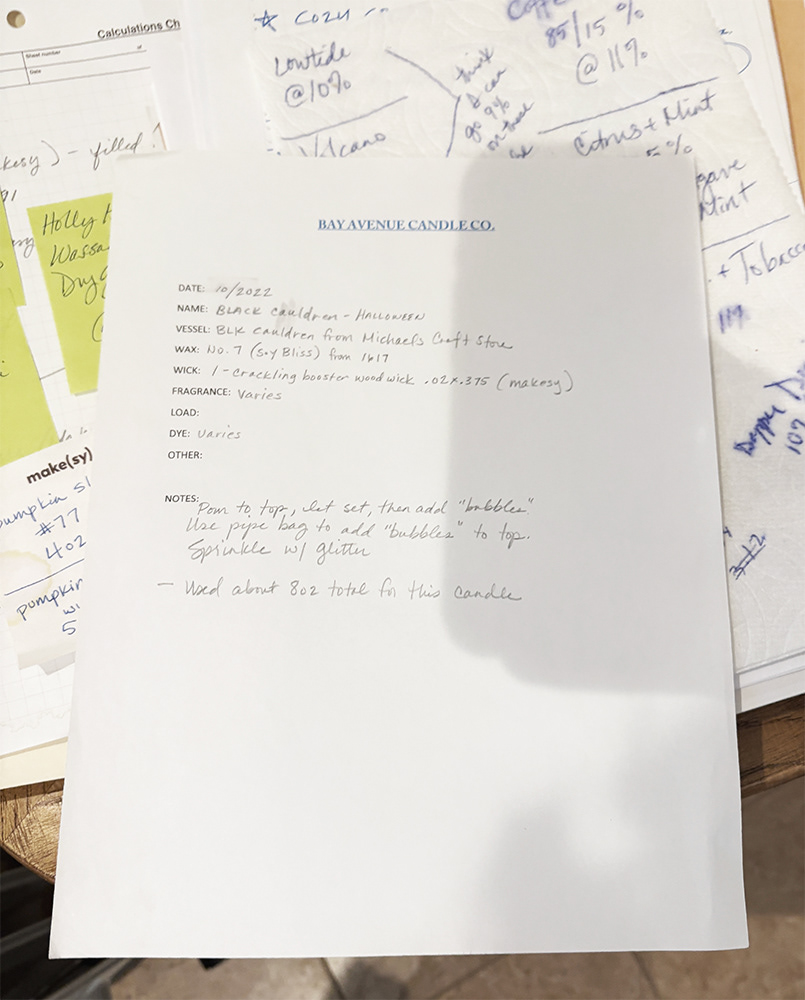 Calculations Ch
Sheet number
of
Date
- filled
Holly
Wassa
make(sy)
pumpkin
#77
4oz
pumpkin
5
COZY
Lowtide
@10%
Volcano
think
I can
go 9%
85/15 %
@ 11%
Citrus + Mint
5%
Mint
+ Tobacc
11%
BAY AVENUE CANDLE CO.
DATE: 10/2022
NAME: BLACK Cauldren - HALLOWEEN
VESSEL: BLK Cauldren from Michaels Craft Store
WAX: No. 7 (Soy Bliss) from 1617
WICK: 1 - crackling booster wood wick .02x.375 (makesy)
FRAGRANCE: Varies
LOAD:
DYE: Varies
OTHER:
NOTES:
Pour to top, let set, then add "bubbles"
Use pipe bag to add "bubbles" to top.
Sprinkle w/ glitter
- Used about 8oz total for this candle